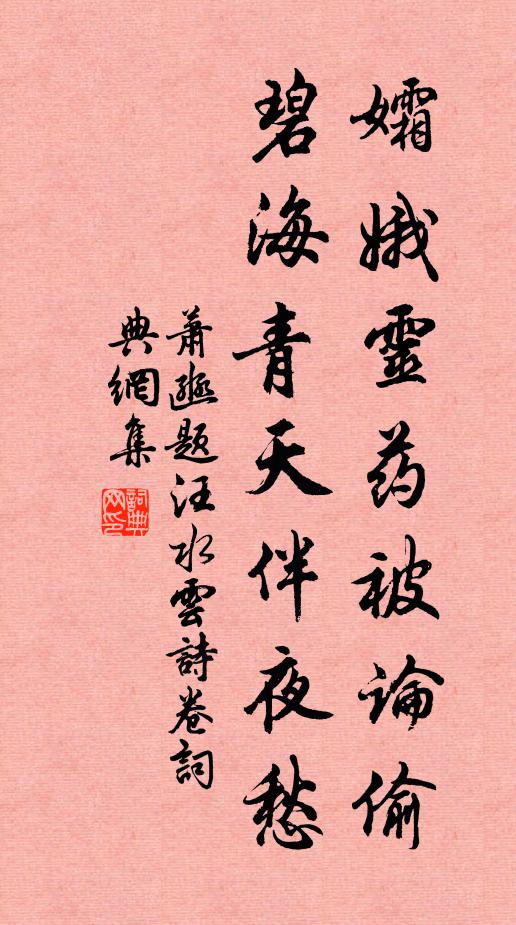 孀娥靈药被論偷
碧海青天伴夜愁
蕭題汪水雲詩卷詞
典網集
詞典
网印